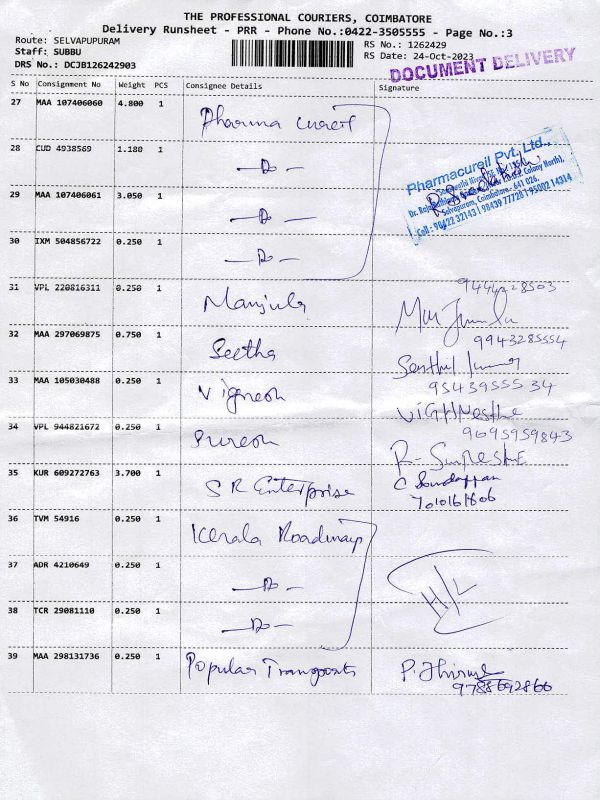 THE PROFESSIONAL COURIERS, COIMBATORE
Delivery Runsheet - PRR - Phone No.:0422-3505555 - Page No.:3
Route: SELVAPUPURAM
RS No.: 1262429
Staff: SUBBU
RS Date: 24-Oct-2023
DRS No.: DCJB126242903
DOCUMENT DELIVERY
S No Consignment No Weight PCS Consignee Details Signature
27 MAA 107406060 4.800 1 Pharma cureil
28 CUD 4938569 1.180 1 —Do—
Pharmacureil Pvt. Ltd.,
29 MAA 107406061 3.050 1 —Do—
Selvapuram, Coimbatore - 641 026.
Cell : 98422 32143 | 98439 77728 | 95002 14314
30 IXM 504856722 0.250 1 —Do—
31 VPL 220816311 0.250 1 Manjula
9444228503
32 MAA 297069875 0.750 1 Seetha
9943285554
Senthil kumar
33 MAA 105030488 0.250 1 Vignesh
9543955534
34 VPL 944821672 0.250 1 Suresh
9695959843
35 KUR 609272763 3.700 1 S R Enterprise
7010161606
36 TVM 54916 0.250 1 Kerala Roadways
37 ADR 4210649 0.250 1 —Do—
H/L
38 TCR 29081110 0.250 1 —Do—
39 MAA 298131736 0.250 1 Popular Transports
9788692866